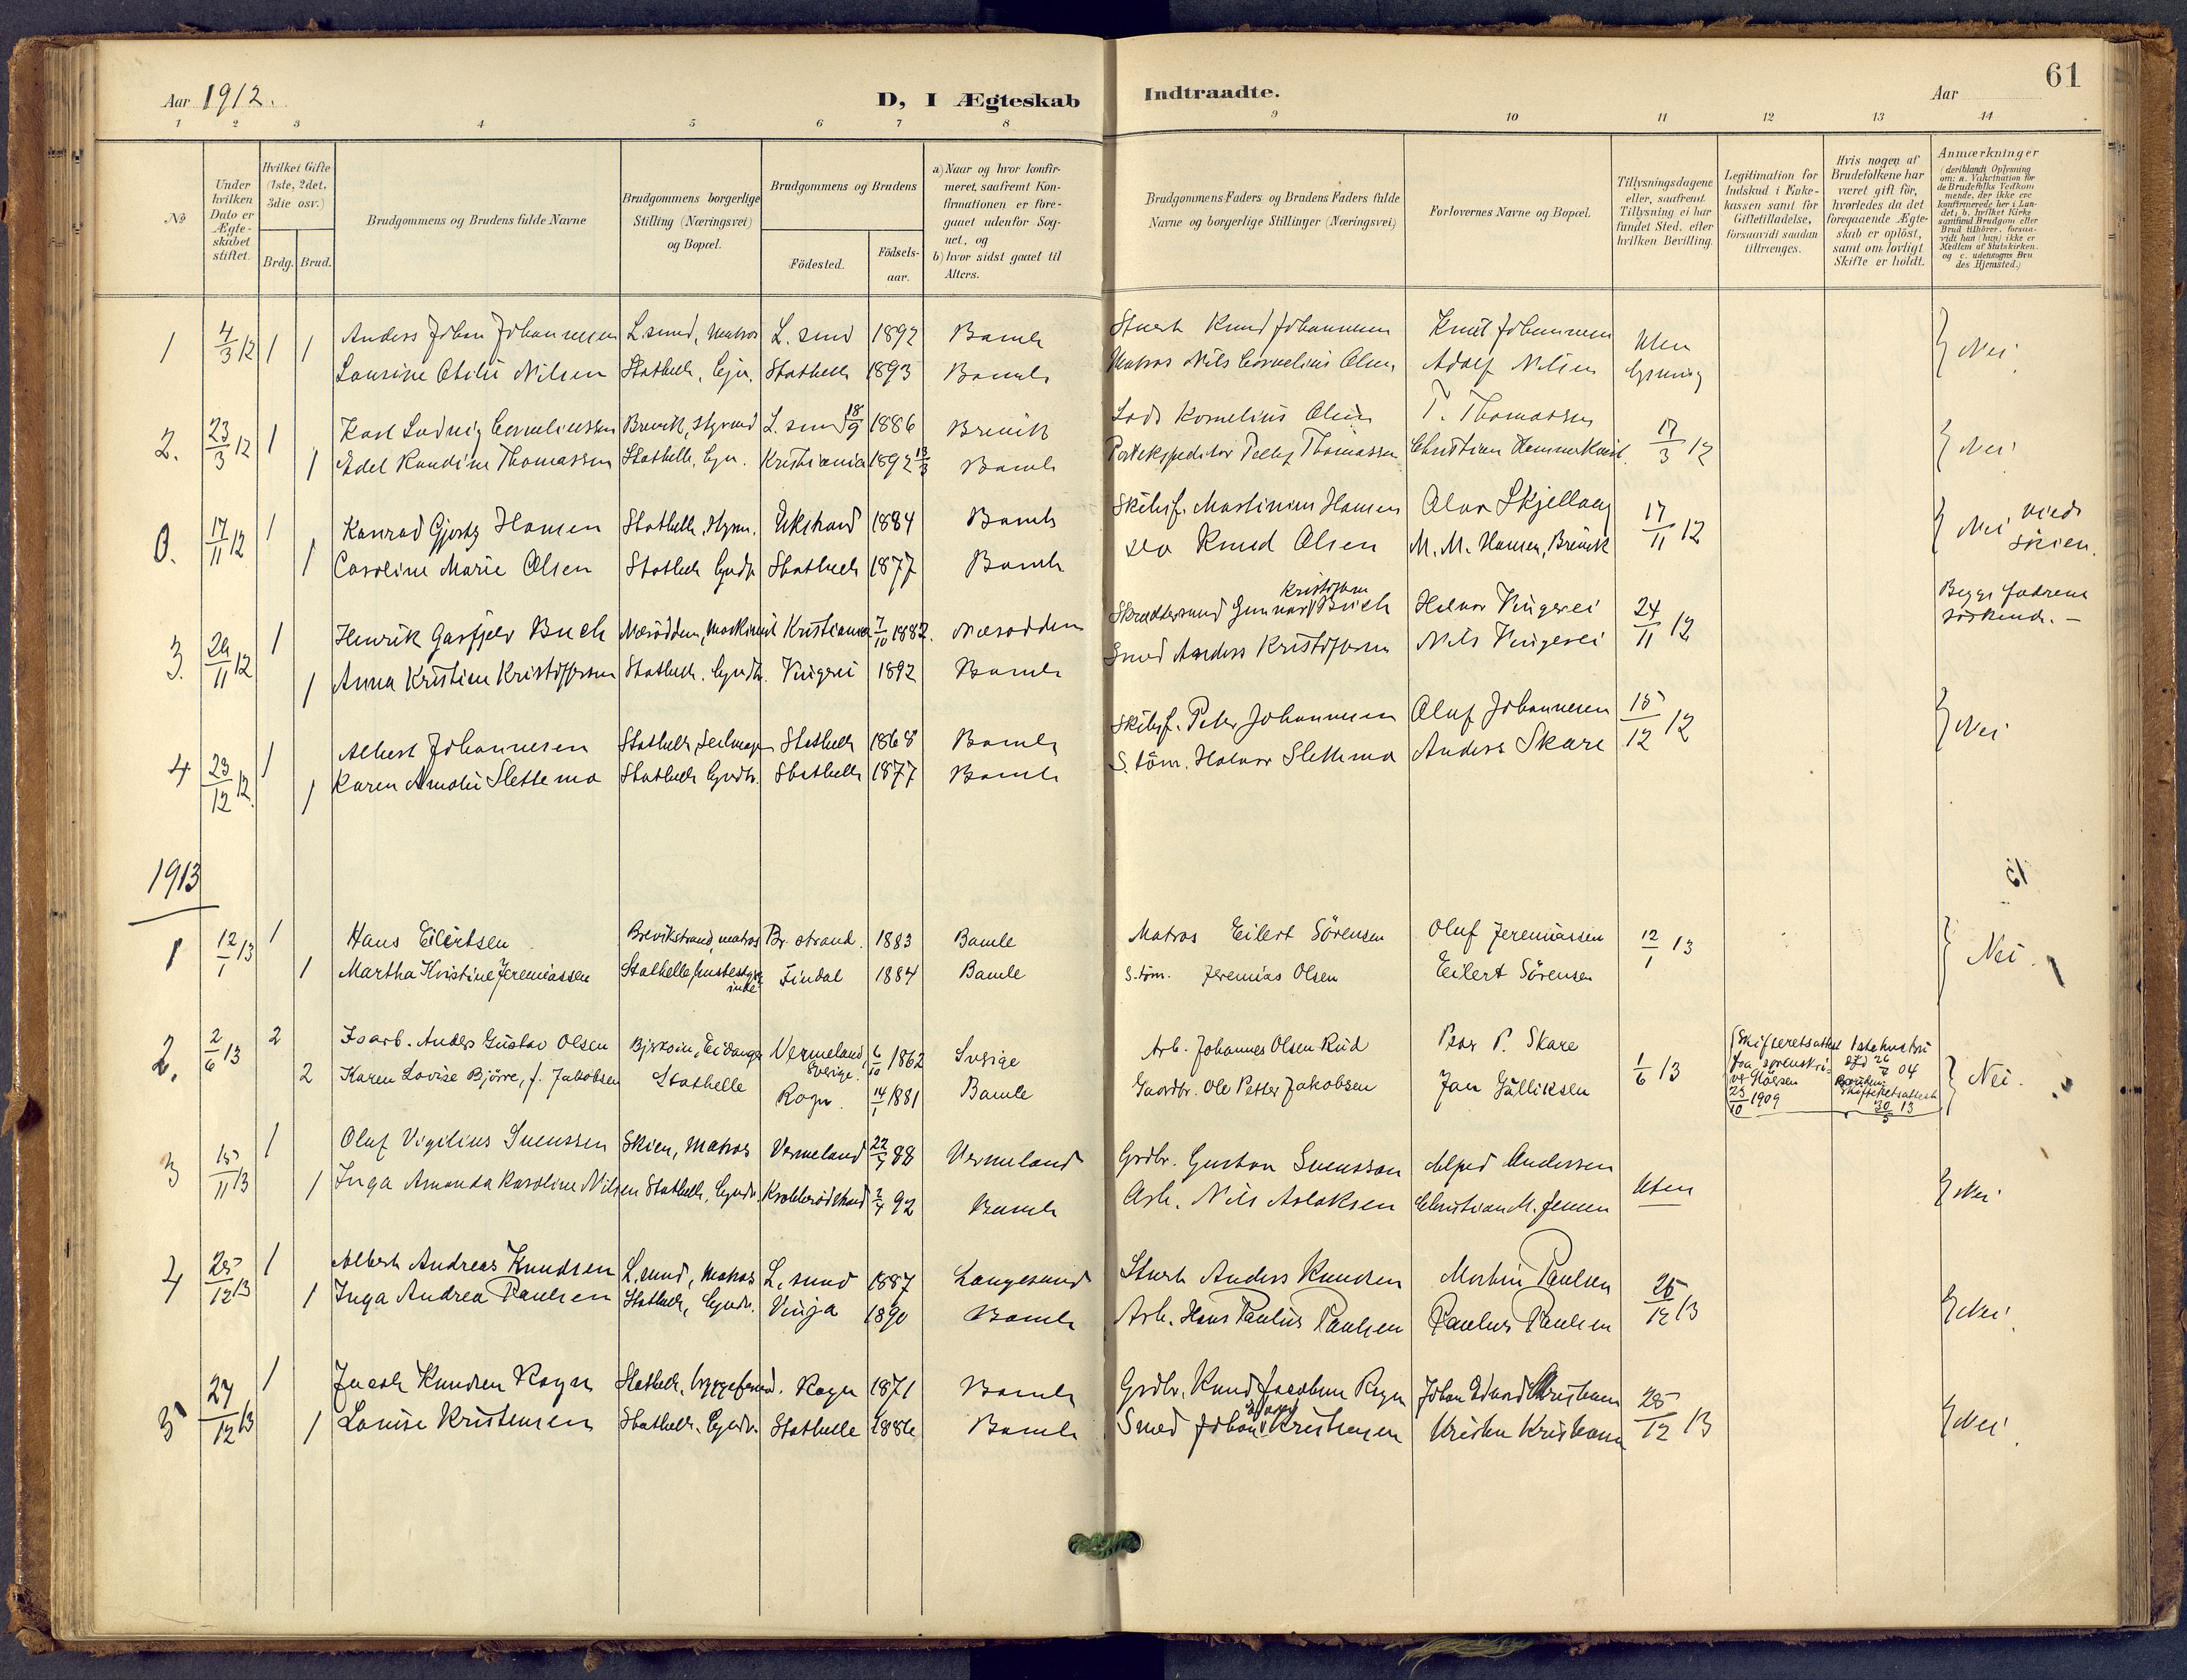 Aar 1912.
D, I Ægteskab Indtraadte.
Aar
61
1 2 3 4 5 6 7 8 9 10 11 12 13 14
No
Under hvilken Dato er Ægteskabet stiftet.
Hvilket Gifte (1ste, 2det, 3die osv.)
Brdg. Brud.
Brudgommens og Brudens fulde Navne
Brudgommens borgerlige Stilling (Næringsvei) og Bopæl.
Brudgommens og Brudens
Födested.
Födsels-aar.
a) Naar og hvor konfirmeret, saafremt Konfirmationen er foregaaet udenfor Sognet, og
b) hvor sidst gaaet til Alters.
Brudgommens Faders og Brudens Faders fulde Navne og borgerlige Stillinger (Næringsvei)
Forlovernes Navne og Bopæl.
Tillysningsdagene eller, saafremt Tillysning ei har fundet Sted, efter hvilken Bevilling.
Legitimation for Indskud i Enkekassen samt for Giftetilladelse, forsaavidt saadan tiltrænges.
Hvis nogen af Brudefolkene har været gift för, hvorledes da det foregaaende Ægteskab er oplöst, samt om lovligt Skifte er holdt.
Anmærkninger (deriblandt Oplysning om: a. Vakcination for de Brudefolks Vedkommende, der ikke ere konfirmerede her i Landet; b. hvilket Kirkesamfund Brudgom eller Brud tilhörer, forsaavidt han (hun) ikke er Medlem af Statskirken. og c. udensogns Brudes Hjemsted.)
1 4/3 12 1 Anders Johan Johannesen L.sund, Matros L. sund 1892 Bamle Knud Johannesen Knut Johannesen Uten
1 Laurine Otilie Nilsen Stathelle, Stathelle 1893 Bamle Matros Nils Cornelius Olsen Adolf Nilsen Nei.
2. 23/3 12 1 Karl Ludvig Corneliussen Brevik, styrmd L. sund 18/9 1886 Brevik Lods Kornelius Olsen T. Thomassen 17/3 12
1 Edel Randine Thomassen Stathelle, Kristiania 1892 Bamle Thomassen Christian Hammerkvist. Nei
0. 17/11 12 1 Konrad Hansen Stathelle, styrm. 1884 Bamle Skibsf. Martinius Hansen Olav 17/11 12 Nei viede Skien.
1 Caroline Marie Olsen Stathelle Stathelle 1877 Bamle Knud Olsen M. M. Hansen, Brevik
3. 24/11 12 1 Henrik Garfjelv Buch Næsodden, Maskinist Kristiania 7/10 1882. Næsodden Gunnar Kristofferm Buch Halvor Vingerei 24/11 12 Begges fædrene söskende. —
1 Anna Kristine Kristoffersen Stathelle. Vingerei 1892 Bamle Smed Anders Kristoffersen Nils Vingerei
4 23/12 12. 1 Albert Johannesen Stathelle, Seilmager Stathelle 1868 Bamle Skibsf. Peter Johannesen Oluf Johannesen 15/12 12 Nei
1 Karen Amalie Slettemo Stathelle Stathelle 1877 Bamle S. töm. Halvor Slettemo Anders Skare
1913
1 12/1 13 1 Hans Eilertsen Brevikstrand, matros Br. strand. 1883 Bamle Matros Eilert Sörensen Oluf Jeremiassen 12/1 13
1 Martha Kristine Jeremiassen Stathelle, Findal 1884 Bamle S. töm. Jeremias Olsen Eilert Sörensen Nei.
2. 2/6 13 2 Isarb. Anders Gustav Olsen Björkoien, Eidanger Vermeland, Sverige. 6/10 1862 Sverige Arb. Johannes Olsen Rud Peer P. Skare 1/6 13
2 Karen Lovise Bjørre, f. Jakobsen Stathelle Rogn. 14/1 1881 Bamle Gaardbr. Ole Petter Jakobsen Jan Gulliksen Nei.
Skifteretsattest fra sorenskriver 23/10 1909
1ste hustru 04 Skifteretsattest 30/5 13
3 15/11 13 1 Oluf Vigilius Svenssen Skien, Matros Vermeland 22/7 88 Vermeland Grdbr. Gustav Svensson Alfred Andersen Uten
1 Inga Amanda Karoline Nilsen Stathelle, 92 Bamle Arb. Nils Aslaksen Christian M. Jensen Nei.
4 25/12 13 1 Albert Andreas Knudsen L.sund, Matros L. sund 1887 Langesund Anders Knudsen Martin Paulsen 25/12 13
1 Inga Andrea Paulsen Stathelle, Vinja 1890 Bamle Arb. Hans Paulius Paulsen Paulus Paulsen Nei.
5 27/12 13 1 Jacob Knudsen Rogn Stathelle, bryggefmd. Rogn 1871 Bamle Grdbr. Knud Jacobsen Rogn Johan Edvard Kristensen 25/12 13
1 Lovise Kristensen Stathelle. Stathelle 1886 Bamle Smed Johan Kristensen Kristen Kristensen Nei.